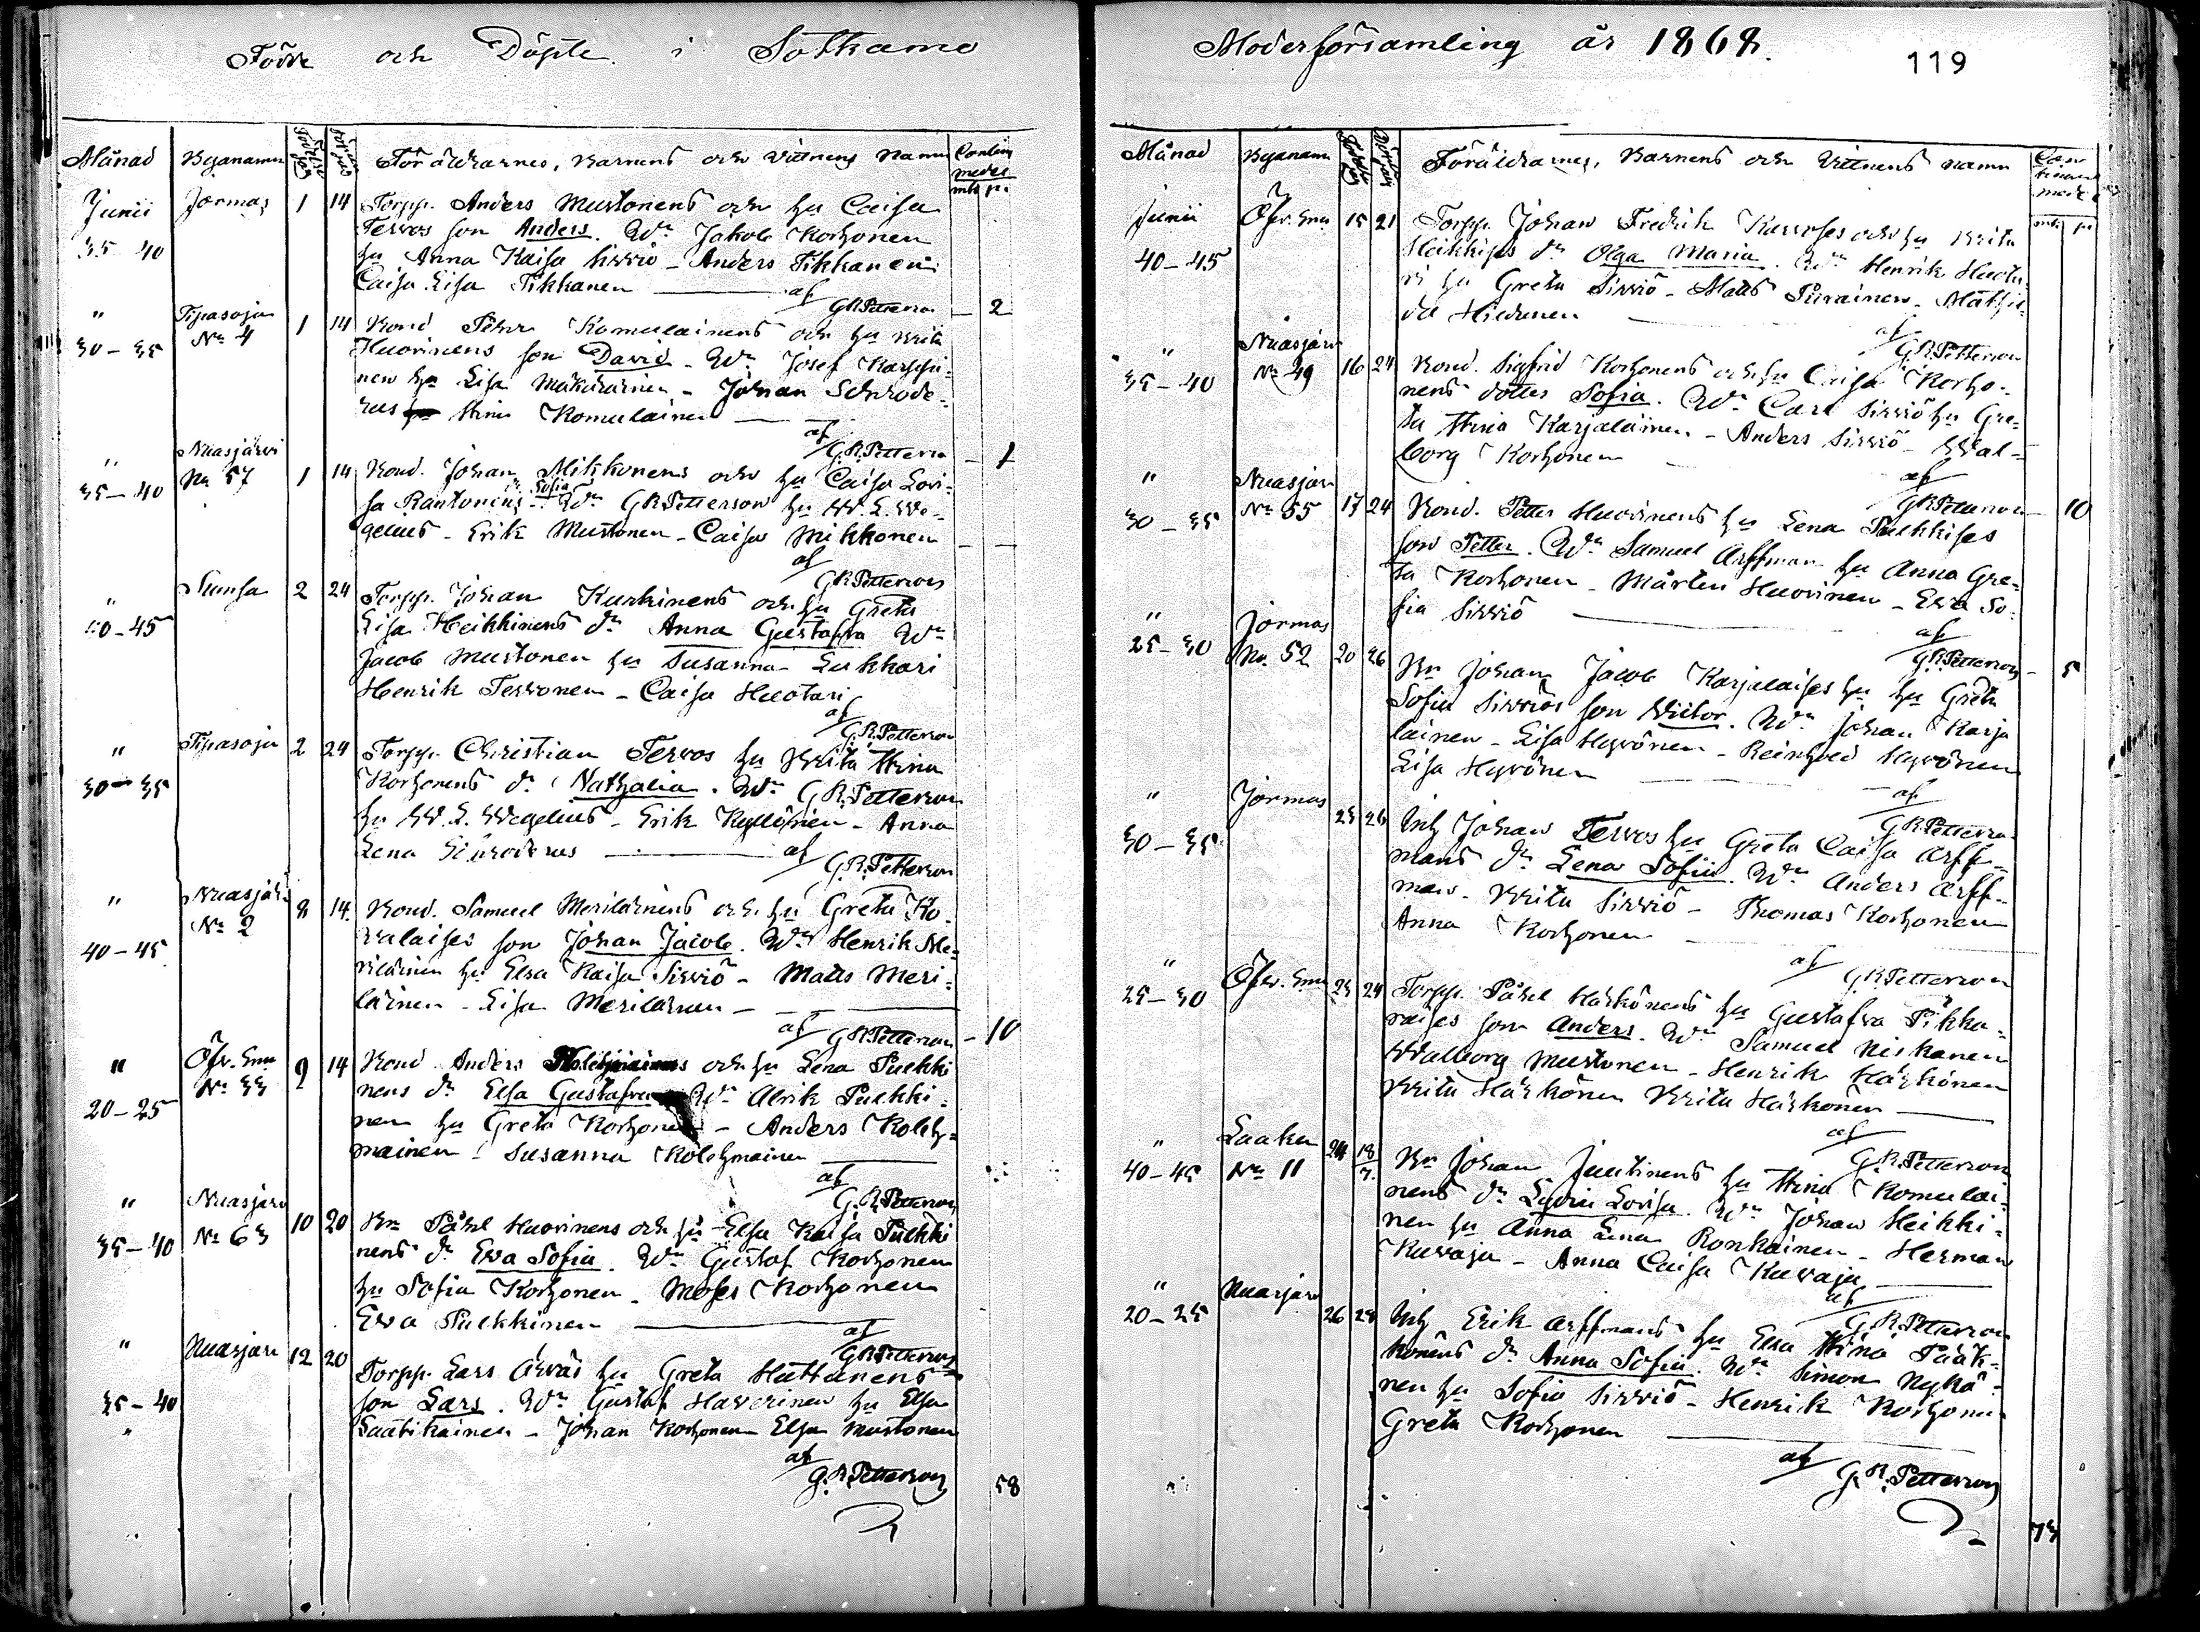 Födde och Döpte i Sotkamo
Månad Byanamn Föräldrarnes, Barnens och Vittnens Namn
mk p.
Junii Jormas 1 14 Torpp. Anders Mustonens och hu Caisa
35-40 Tervos son Anders. Wn Jakob Korhonen
hu Anna Kaisa Sirviö - Anders Tikkanen
Caisa Lisa Tikkanen
af
G.R. Petterson - 2
" Tipasoja 1 14 Bond Pehr Komulainens och hu Brita
30-35 No 4 Huovinens son David. Wn Josef Karppi-
nen hu Lisa Mäkäräinen - Johan Schrode-
rus Stina Komulainen
af
G.R. Petterson - 1
" Nuasjärvi
35-40 No 57 1 14 Bond. Johan Mikkonens och hu Caisa Lovi-
sa Rantonens dr Sofia Wn G R Petterson hu W. L. We-
gelius - Erik Mustonen - Caisa Mikkonen
af
G.R. Petterson
" Sumsa 2 24 Torpp. Johan Kurkinens och hu Greta
40-45 Lisa Heikkinens dr Anna Gustafva Wn
Jacob Mustonen hu Susanna Lukkari
Henrik Tervonen - Caisa Huotari
af
G.R. Petterson
" Tipasoja 2 24 Torpp. Christian Tervos hu Brita Stina
30-35 Korhonens dr Nathalia. Wn G R. Petterson
hu W. L. Wegelius - Erik Kyllönen - Anna
Lena Schroderus af
G.R. Petterson
" Nuasjärvi
40-45 No 2 8 14 Bond. Samuel Meriläinens och hu Greta Ko-
valaises son Johan Jacob. Wn Henrik Me-
riläinen hu Elsa Kaisa Sirviö - Matts Meri-
läinen - Lisa Meriläinen
af G.R. Petterson - 10
" Öfv. Sm
20-25 No 33 9 14 Bond Anders Kolehmainens och hu Lena Pulkki
nens dr Elsa Gustafva Wn Alrik Pulkki-
nen hu Greta Korhonen - Anders Koleh-
mainen - Susanna Kolehmainen
af
G.R. Petterson
" Nuasjärvi
35-40 No 63 10 20 Bn Påhl Huovinens och hu Elsa Kaisa Pulkki
nens dr Eva Sofia. Wn Gustaf Korhonen
hu Sofia Korhonen - Moses Korhonen
Eva Pulkkinen
af
G.R. Petterson
" Nuasjärvi 12 20 Torpp. Lars Ärväs hu Greta Huttunens
35-40 son Lars. Wn Gustaf Haverinen hu Elsa
Säätikainen - Johan Korhonen Elsa Mustonen
af
G.R. Petterson
58
Moderförsamling år 1868.
119
Månad Byanamn Föräldrarnes, Barnens och Vittnens namn
mk p
Junii Öfv. Sm 15 21 Torpp. Johan Fredrik Karvoses och hu Brita
40-45 Heikkises dr Olga Maria. Wn Henrik Huota-
ri hu Greta Sirviö - Matts Piirainen - Mathil-
da Hiltunen
af
G.R. Petterson
" Nuasjärvi
35-40 No 49 16 24 Bond. Sigfrid Korhonens och hu Caisa Korho-
nens dotter Sofia. Wn Carl Sirviö hu Gre-
ta Stina Karjalainen - Anders Sirviö - Wal-
borg Korhonen
af
G.R. Petterson - 10
" Nuasjärvi
30-35 No 55 17 24 Bond. Petter Huovinens hu Lena Pulkkises
son Petter. Wn Samuel Arffman hu Anna Gre-
ta Korhonen - Mårten Huovinen - Eva So-
fia Sirviö
af
G.R. Petterson - 5
" Jormas
25-30 No 52 20 26 Bn Johan Jacob Karjalaises hu Greta
Sofia Sirviös son Victor. Wn Johan Karja
lainen - Lisa Hyvönen - Reinhold Hyvönen
Lisa Hyvönen
af
G.R. Petterson
" Jormas 23 26 Inh Johan Tervos hu Greta Caisa Arff-
30-35 mans dr Lena Sofia. Wn Anders Arff-
man - Brita Sirviö - Thomas Korhonen
Anna Korhonen
af
G.R. Petterson
" Öfv. Sm 23 24 Torpp. Påhl Härkönens hu Gustafva Pikka-
25-30 raises son Anders. Wn Samuel Niskanen
Walborg Mustonen - Henrik Härkönen
Brita Härkönen Brita Härkönen
af
G.R. Petterson
" Laaka
40-45 No 11 24 18/7 Bn Johan Juutinens hu Stina Komulai-
nens dr Lydia Lovisa. Wn Johan Heikki-
nen hu Anna Lena Ronkainen - Herman
Kuvaja - Anna Caisa Kuvaja
af
G.R. Petterson
" Nuasjärvi
20-25 26 28 Inh Erik Arffmans hu Elsa Stina Pääk-
könens dr Anna Sofia. Wn Simon Nykä-
nen hu Sofia Sirviö - Henrik Korhonen
Greta Korhonen
af
G.R. Petterson
73